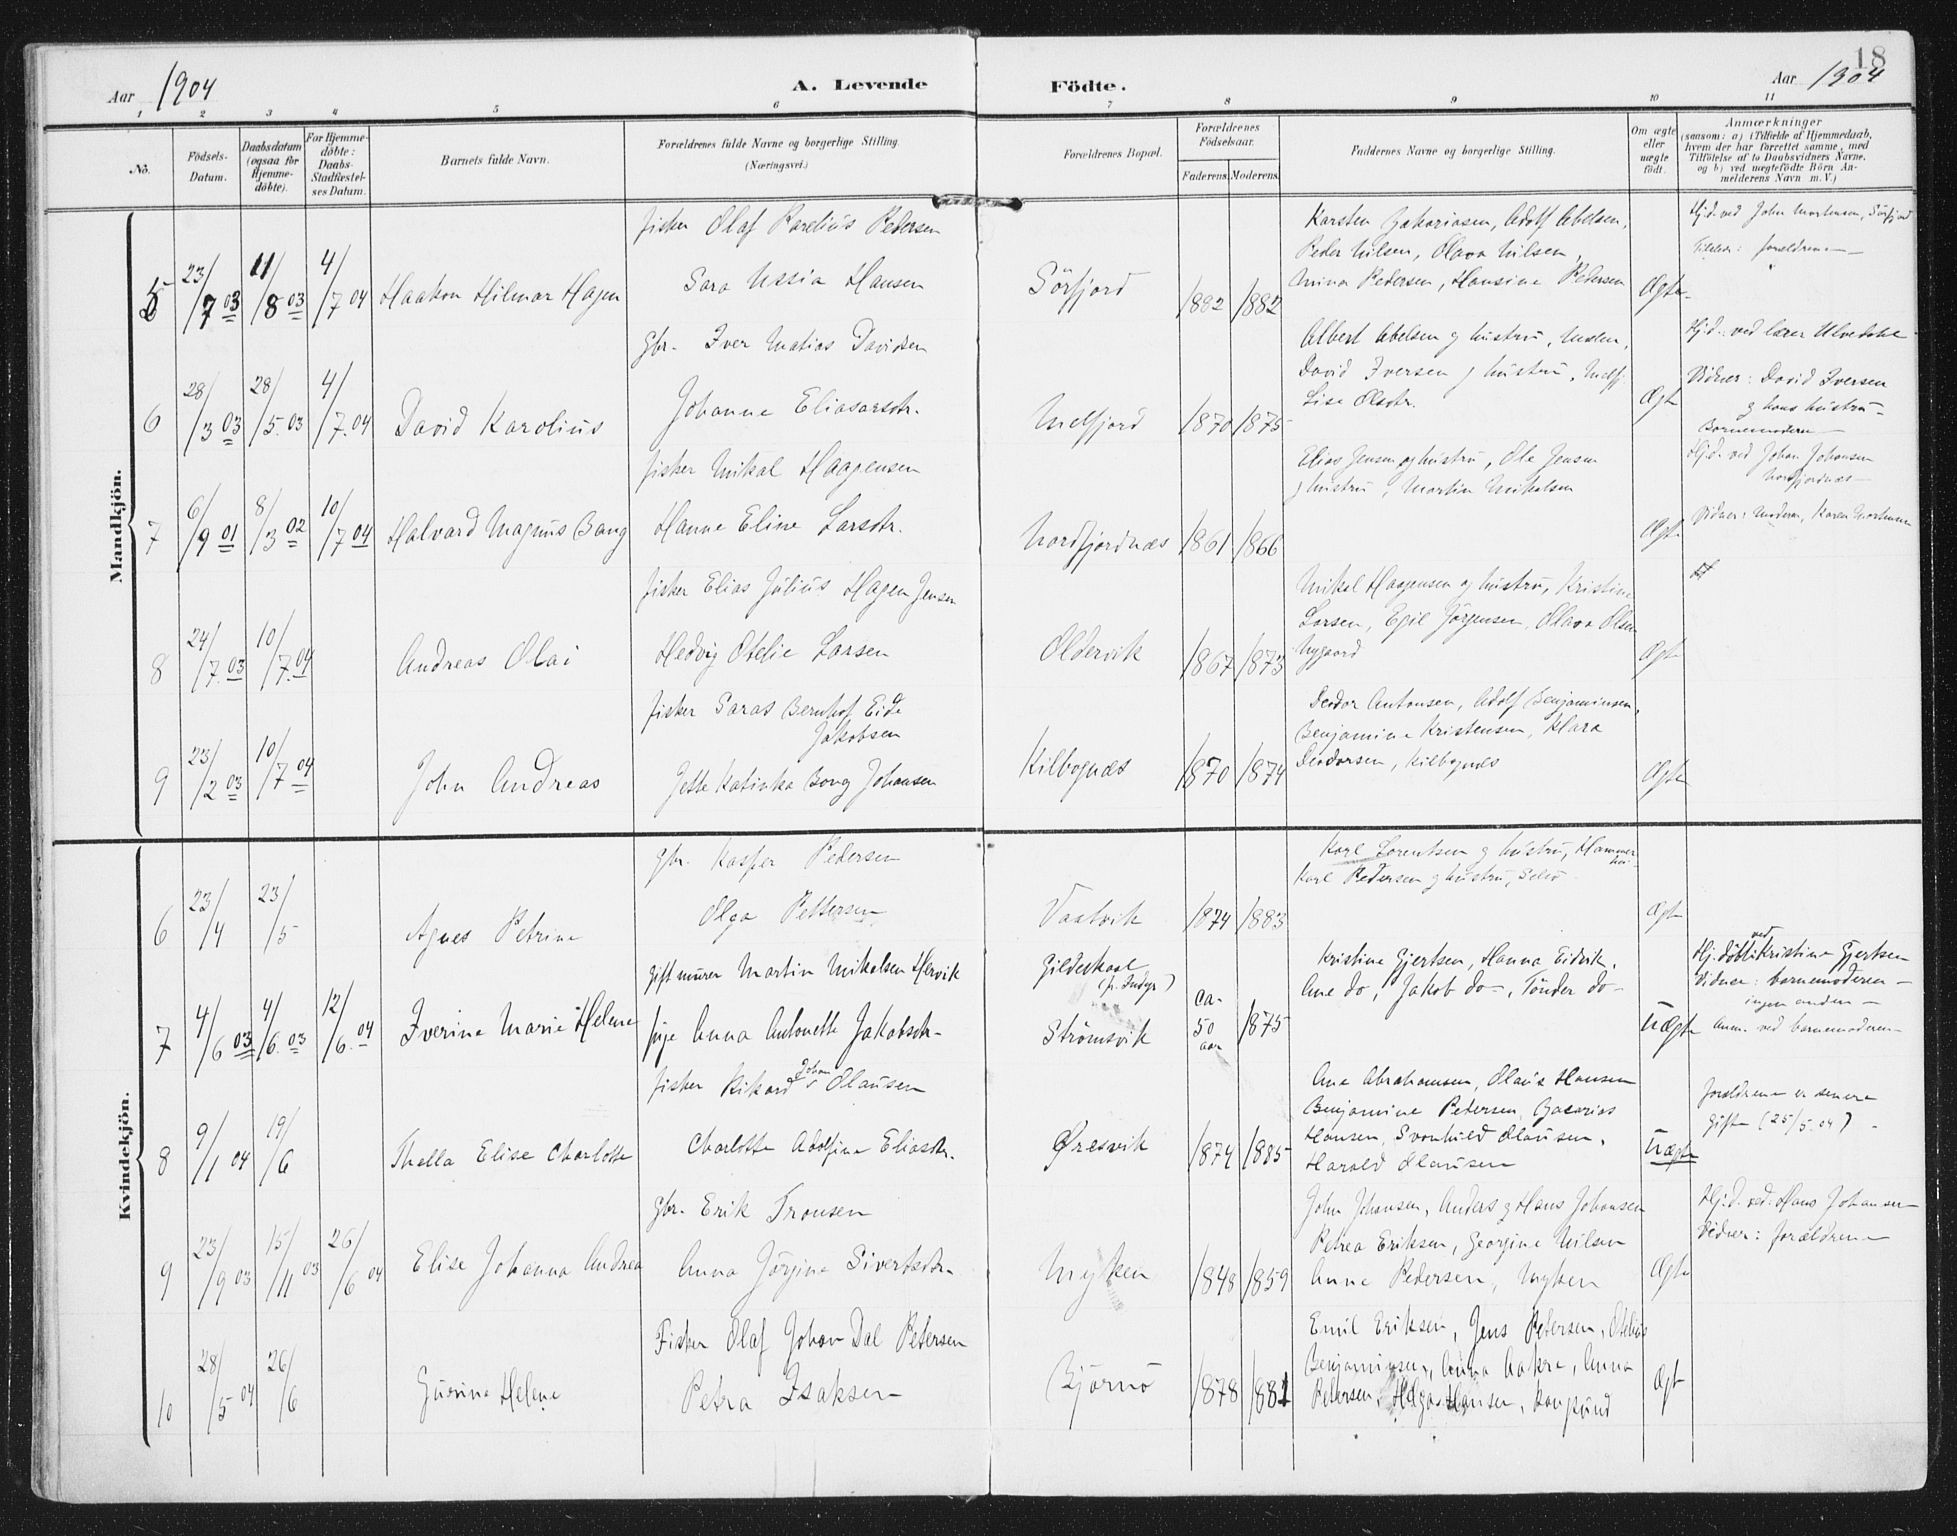 18
Aar 1904
A. Levende
Födte.
Aar 1904
1 2 3 4 5 6 7 8 9 10 11
No.
Födsels-Datum.
Daabsdatum (ogsaa for Hjemme-döbte).
For Hjemme-döbte: Daabs-Stadfæstel-ses Datum.
Barnets fulde Navn.
Forældrenes fulde Navne og borgerlige Stilling. (Næringsvei.)
Forældrenes Bopæl.
Forældrenes Födselsaar.
Faderens. Moderens.
Faddernes Navne og borgerlige Stilling.
Om ægte eller uægte födt.
Anmærkninger
(saasom: a) i Tilfælde af Hjemmedaab, hvem der har forrettet samme, med Tilföielse af to Daabsvidners Navne, og b) ved uægtefödte Börn Anmelderens Navn m. V.)
Mandkjön.
5 23/7 03 11/8 03 4/7 04 Haakon Hilmar Hagen
fisker Olaf Karelius Pedersen
Sara Ussia Hansen
Sörfjord 1882 1882
Karsten Zakariasen, Adolf Abelsen,
Peder Nilsen, Olava Nilsen,
Anina Pedersen, Hansine Pedersen
Ægte
Hj.d. ved John Mortensen, Sörfjord
forældrene
6 28/3 03 28/5 03 4/7 04 David Karolius
gbr. Iver Matias Davidsen
Johanne Eliasarsdtr.
Melfjord 1870 1875
Albert Abelsen og hustru,
David Iversen og hustru, Melfj.
Lise Olsdtr.
Ægte
Hj.d. ved lærer
Vidner: David Iversen
og hans hustru
Barnemoderen
7 6/9 01 8/3 02 10/7 04 Halvard Magnus Bang
fisker Mikal Haagensen
Hanne Eline Larsdtr.
Nordfjordnæs 1861 1866
Elias Jensen og hustru, Ole Jensen
og hustru, Martin Mikalsen
Ægte
Hj.d. ved Johan Johansen
Nordfjordnæs
Vidner: Moderen, Karen Mortensen
8 24/7 03 10/7 04 Andreas Olai
fisker Elias Julius Hagen Jensen
Hedvig Otelie Larsen
Oldervik 1867 1873
Mikal Haagensen og hustru, Kristine
Larsen, Egil Jörgensen, Olava Olsen
Nygaard
Ægte
9 23/2 03 10/7 04 John Andreas
fisker Saras Bernhof Eide
Jakobsen
Jette Katinka Bong Johansen
Kilbognæs 1870 1874
Deodor Antonsen, Adolf Benjaminsen,
Benjamine Kristensen, Klara
Deodorsen, Kilbognæs
Ægte
Kvindekjön.
6 23/4 23/5 Agnes Petrine
gbr. Kasper Pedersen
Olga Pettersen
Vaatvik 1874 1883
Karl Lorentsen og hustru,
Karl Pedersen og hustru, Selsö
Ægte
7 4/6 03 4/6 03 12/6 04 Iverine Marie Helene
gift murer Martin Mikalsen Hervik
pige Anna Antonette Jakobsdtr.
Gildeskaal
(p. Indyr)
Strömsvik
ca. 50 aar 1875
Kristine Gjertsen, Hanna Eidvik,
Ane do, Jakob do, Tönder do
Uægte
Hj.döbt ved Kristine Gjertsen
Vidner: barnemoderen
ingen anden
Anm. ved barnemoderen
8 9/1 04 19/6 Thella Elise Charlotte
fisker Rikard Johan Olausen
Charlotte Adolfine Eliasdtr.
Øresvik 1874 1885
Ane Abrahamsen, Olaus Hansen
Benjamine Petersen, Zacarias
Hansen, Svanhild Olausen,
Harald Olausen
Uægte
forældrene er senere
gifte (25/5 04)
9 23/9 03 15/11 03 26/6 04 Elise Johanna Andrea
gbr. Erik Tronsen
Anna Jörgine Sivertsdtr.
Myken 1848 1859
John Johansen, Anders og Hans Johansen
Petrea Eriksen, Georgine Nilsen
Anne Pedersen, Myken
Ægte
Hj.d. ved Hans Johansen
Vidner: forældrene
10 28/5 04 26/6 Gurine Helene
Fisker Olaf Johan Dal Petersen
Petra Isaksen
Björnö 1878 1881
Emil Eriksen, Jens Petersen, Otelius
Benjaminsen, Anna Aakre, Anna
Petersen, Helga Hansen, Rangsund
Ægt